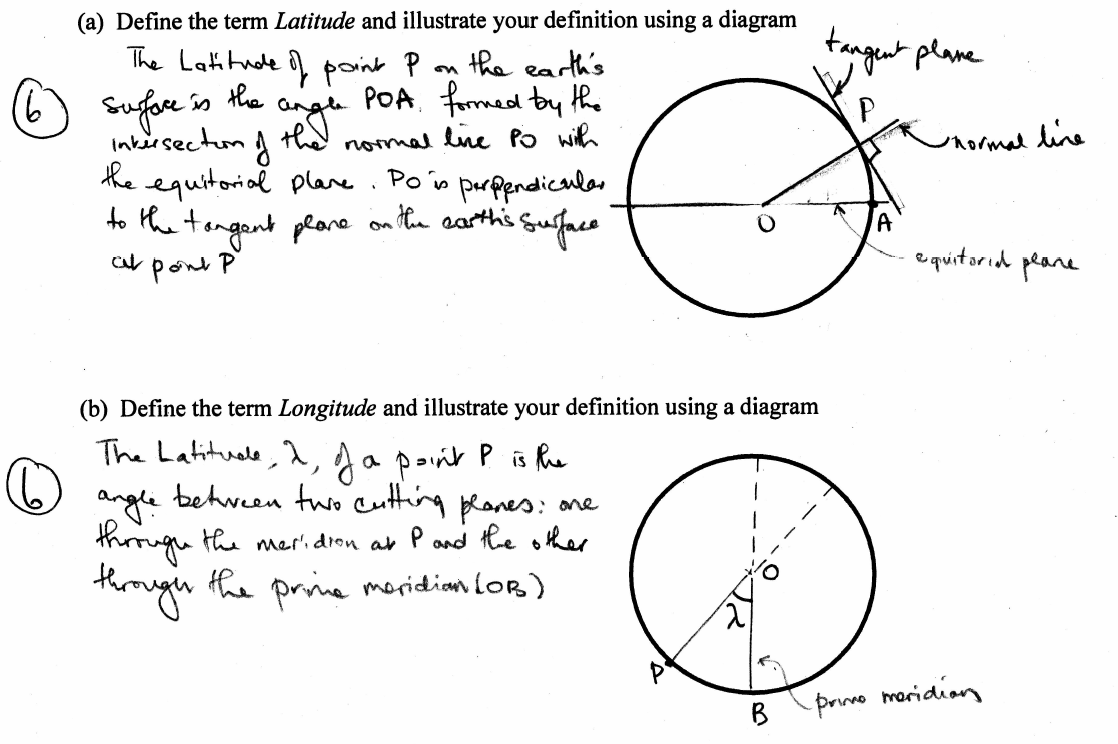 (a) Define the term Latitude and illustrate your definition using a diagram
The Latitude of point P on the earth's
surface is the angle POA, formed by the
intersection of the normal line PO with
the equitorial plane. PO is perpendicular
to the tangent plane on the earth's surface
at point P
6
tangent plane
P
normal line
O
A
equitorial plane
(b) Define the term Longitude and illustrate your definition using a diagram
The Latitude, λ, of a point P is the
angle between two cutting planes: one
through the meridian at P and the other
through the prime meridian (OB)
6
O
λ
P
B
prime meridian